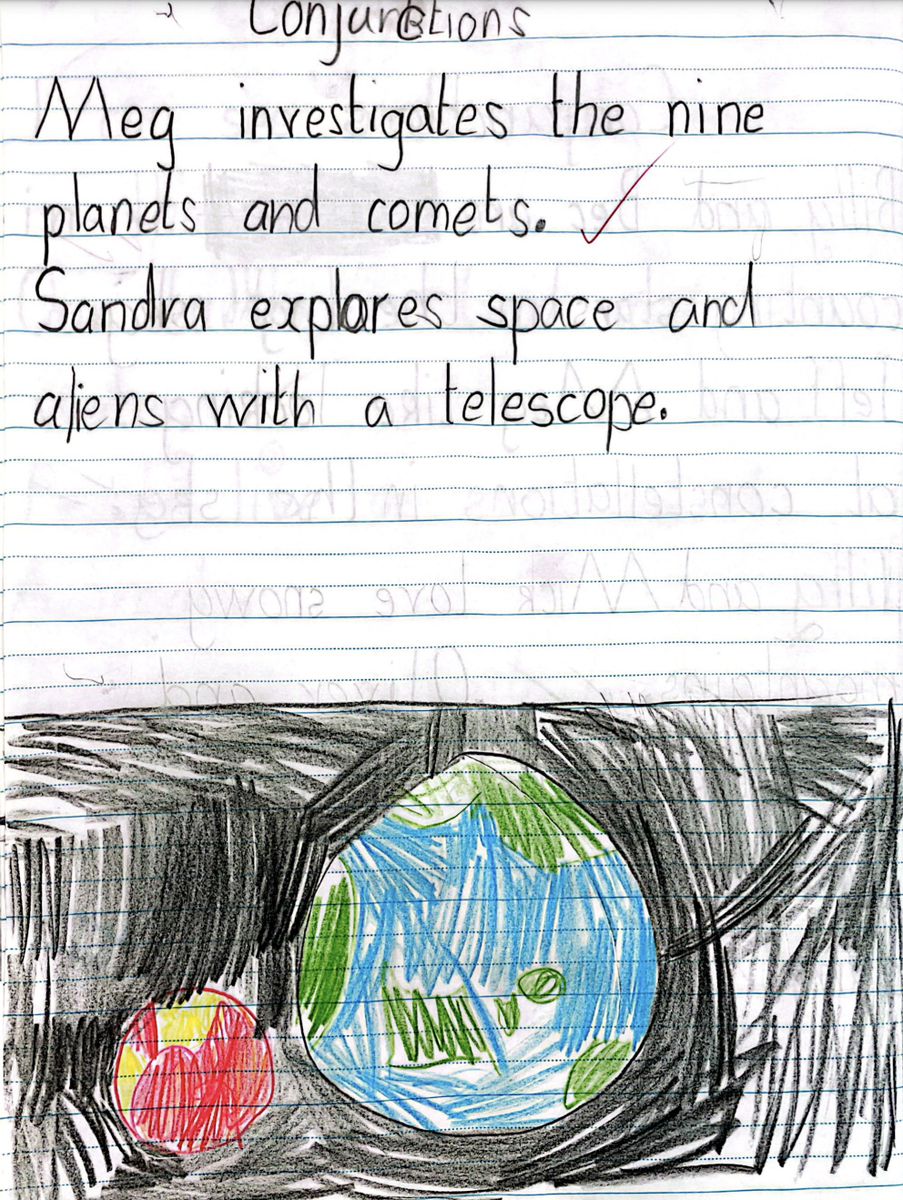 Conjunctions
Meg investigates the nine
planets and comets.
Sandra explores space and
aliens with a telescope.